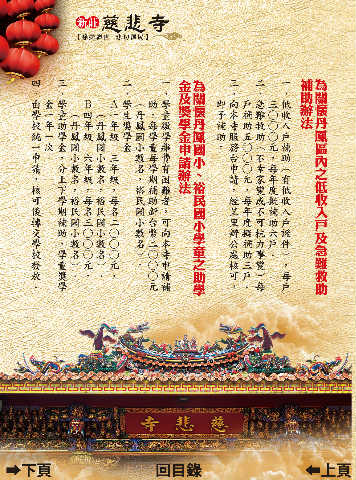 新北 慈悲寺
為關懷丹鳳區內之低收入戶及急難救助
補助辦法
一、低收入戶補助(有低收入戶証件),每戶
三〇〇〇元,每年度擬補助六戶。
二、急難救助,不幸家變或不可抗力事變,每
戶補助五〇〇〇元,每年度擬補助三戶。
三、向本寺服務台申請,經里里辦公處核可
即予補助。
為關懷丹鳳國小、裕民國小學童之助學
金及獎學金申請辦法
一、學童繳學雜費有困難者,可向本寺申請補
助,每學童每學期補助新台幣二〇〇〇元
(丹鳳國小數名),裕民國小數名)。
二、學生獎學金:
A一年級、三年級,每名二〇〇〇元,
(丹鳳國小數名、裕民國小數名)。
B四年級、六年級,每名三〇〇〇元,
(丹鳳國小數名、裕民國小數名)。
三、學童助學金,分上下學期補助,學童獎學
金一年一次。
四、由學校統一申請,核可後轉交學校發放
寺悲慈
➡下頁
回目錄
⬅上頁